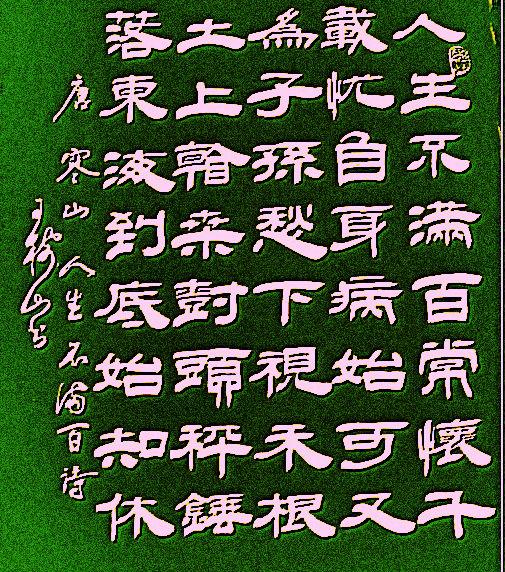 人生不滿百常懷千
載忧自身病始可又
為子孫愁下視禾根
土上看桒尌頭秤錘
落東海到底始知休
唐寒山人生不滿百詩
王樹山书